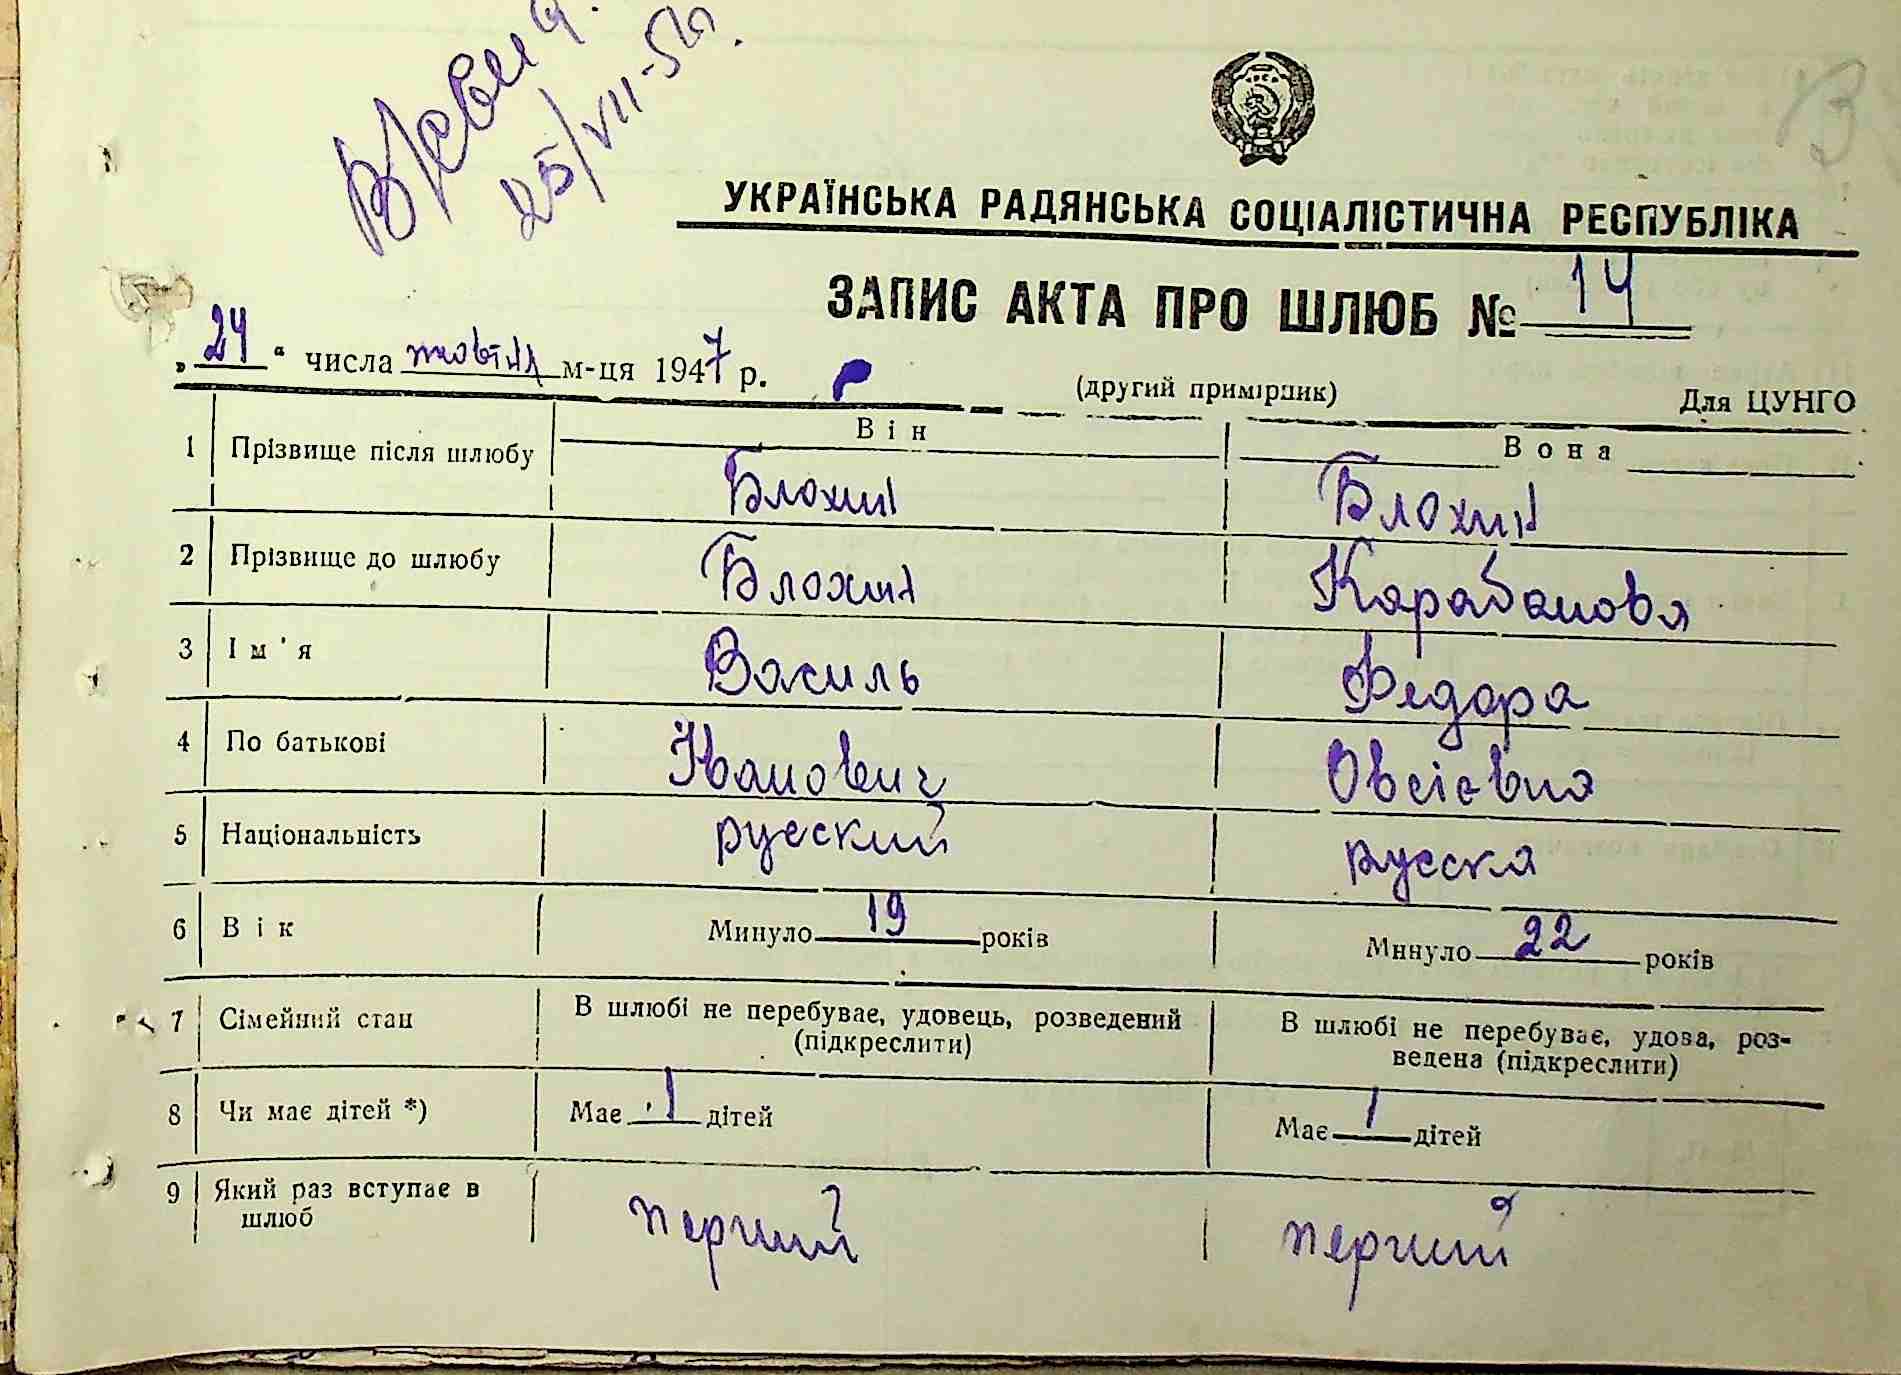 25/VII-51г.
УРСР
УКРАЇНСЬКА РАДЯНСЬКА СОЦІАЛІСТИЧНА РЕСПУБЛІКА
ЗАПИС АКТА ПРО ШЛЮБ № 14
„24“ числа жовтня м-ця 1947 р.
(другий примірник)
Для ЦУНГО
Він Вона
1 Прізвище після шлюбу Блохин Блохин
2 Прізвище до шлюбу Блохин Карабанова
3 Ім'я Василь Федора
4 По батькові Иванович Овсієвна
5 Національність русский русска
6 Вік Минуло 19 років Минуло 22 років
7 Сімейний стан В шлюбі не перебуває, удовець, розведений (підкреслити) В шлюбі не перебуває, удова, роз-
ведена (підкреслити)
8 Чи має дітей *) Має 1 дітей Має 1 дітей
9 Який раз вступає в
шлюб перший перший